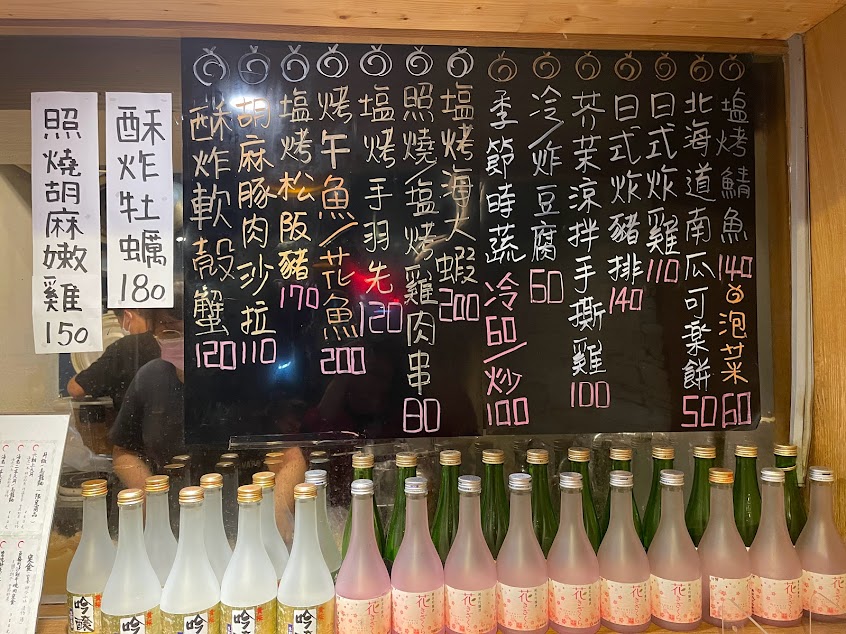 塩烤鯖魚 140
泡菜 60
北海道南瓜可樂餅 50
日式炸雞 110
日式炸豬排 140
芥茉涼拌手撕雞 100
冷/炸豆腐 60
季節時蔬 冷60/炒100
塩烤海大蝦 200
照燒/塩烤雞肉串 80
塩烤手羽先 120
烤午魚/花魚 200
塩烤松阪豬 170
胡麻豚肉沙拉 110
酥炸軟殼蟹 120
酥炸牡蠣 180
照燒胡麻嫩雞 150
吟醸
吟醸
吟
吟醸
吟醸
花
花
花
花
花
花
花
花
花